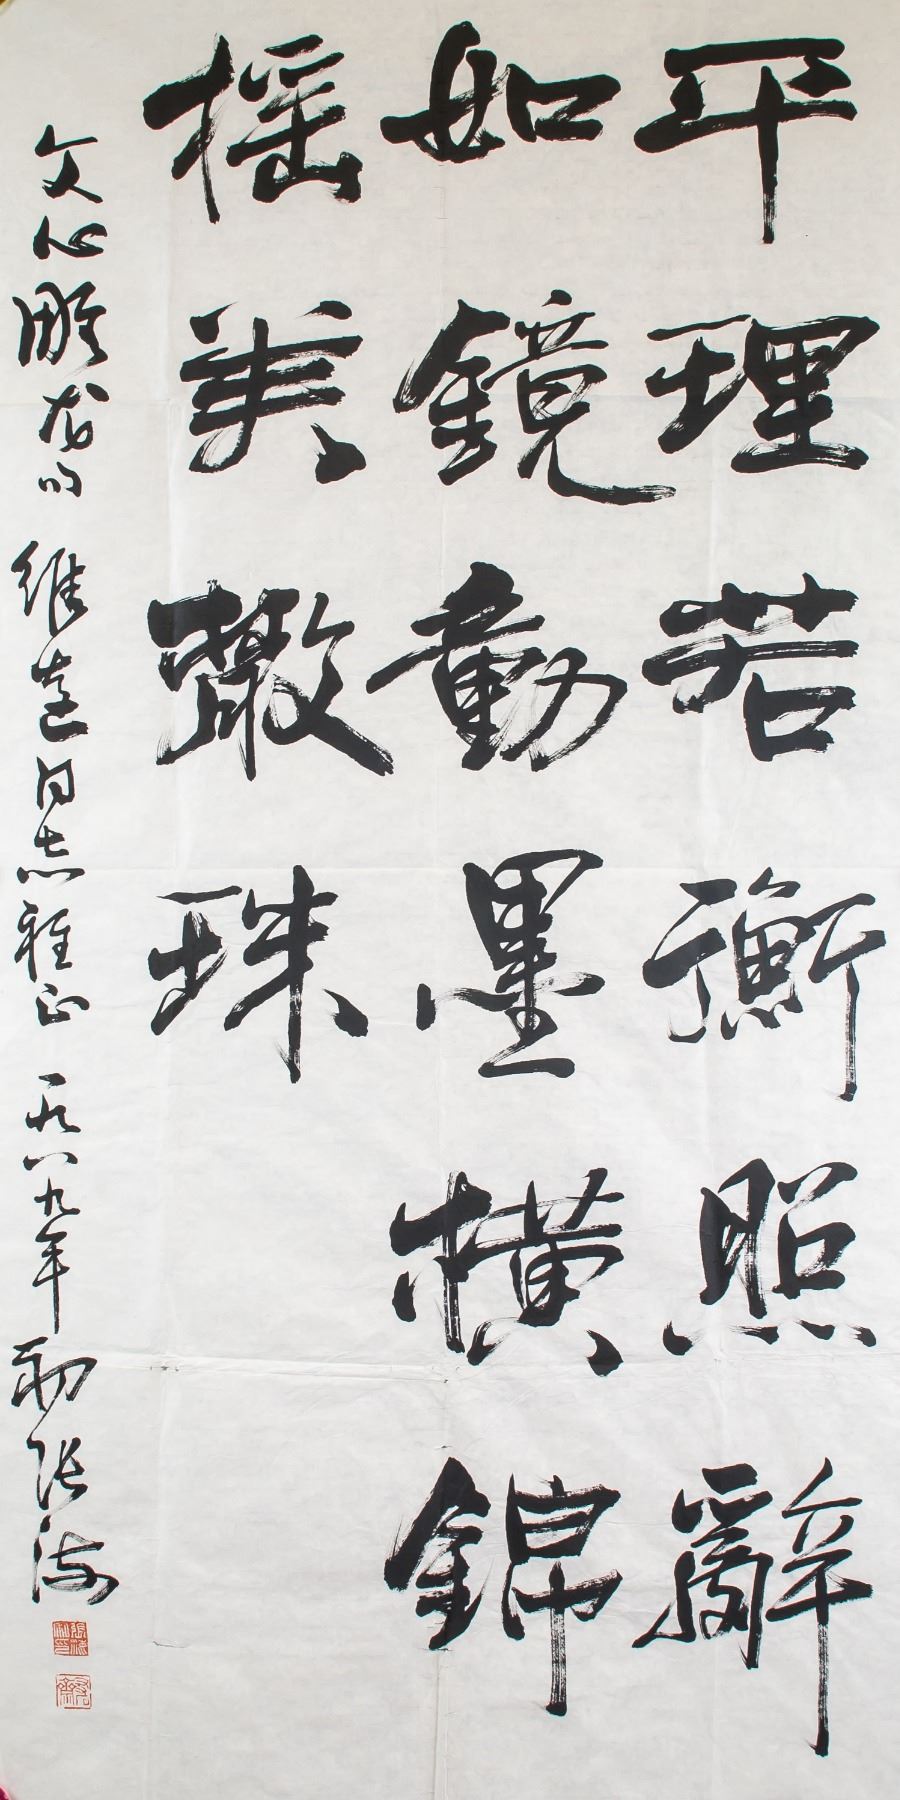 平理若衡照辭
如鏡動墨横錦
摇笔散珠
文心雕龙句 维远同志雅正 一九八九年 初 张海